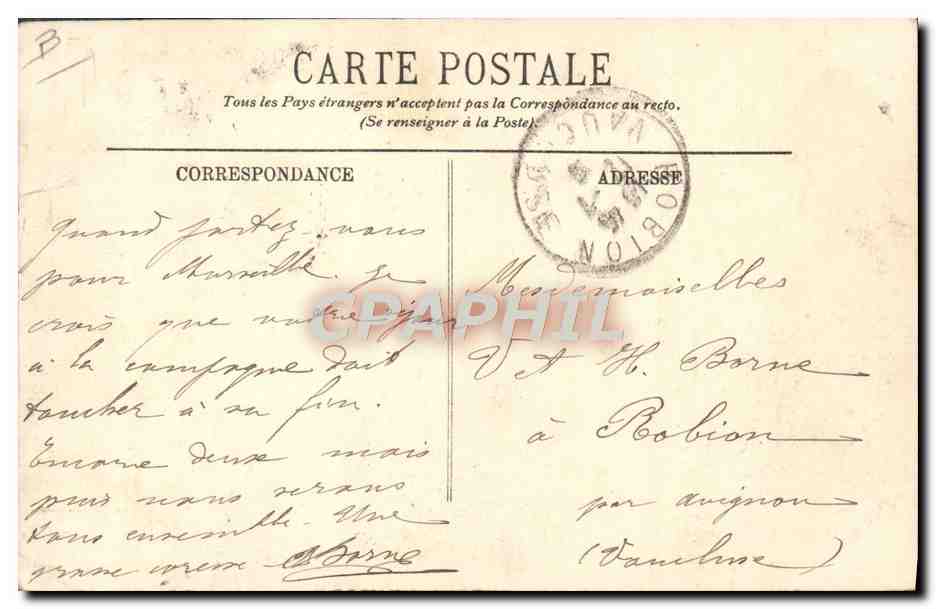 B
CARTE POSTALE
Tous les Pays étrangers n'acceptent pas la Correspondance au recto.
(Se renseigner à la Poste).
CORRESPONDANCE
ADRESSE
ROBION VAUCLUSE
Quand partez-vous
pour Marseille. Je
crois que votre séjour
à la campagne doit
toucher à sa fin.
Encore deux mois
puis nous serons
tous ensemble. Une
grosse caresse ABorne
Mesdemoiselles
V et H. Borne
à Robion
par Avignon
(Vaucluse)
CPAPHIL